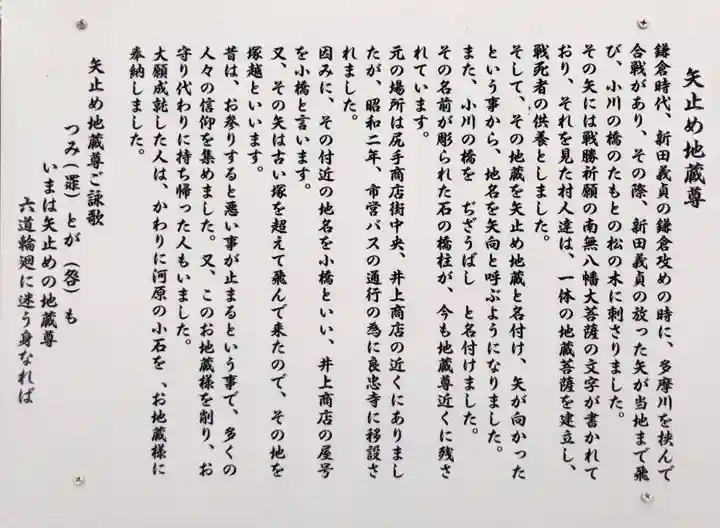 矢止め地蔵尊
鎌倉時代、新田義貞の鎌倉攻めの時に、多摩川を挟んで
合戦があり、その際、新田義貞の放った矢が当地まで飛
び、小川の橋のたもとの松の木に刺さりました。
その矢には戦勝祈願の南無八幡大菩薩の文字が書かれて
おり、それを見た村人達は、一体の地蔵菩薩を建立し、
戦死者の供養としました。
そして、その地蔵を矢止め地蔵と名付け、矢が向かった
という事から、地名を矢向と呼ぶようになりました。
また、小川の橋を ぢぞうばし と名付けました。
その名前が彫られた石の橋柱が、今も地蔵尊近くに残さ
れています。
元の場所は尻手商店街中央、井上商店の近くにありまし
たが 昭和二年、市営バスの通行の為に良忠寺に移設さ
れました。
因みに、その付近の地名を小橋といい、井上商店の屋号
を小橋と言います。
又、その矢は古い塚を超えて飛んで来たので、その地を
塚越といいます。
昔は、お参りすると悪い事が止まるという事で、多くの
人々の信仰を集めました。又、このお地蔵様を削り、お
守り代わりに持ち帰った人もいました。
大願成就した人は、かわりに河原の小石を、お地蔵様に
奉納しました。
矢止め地蔵尊ご詠歌
つみ(罪)とが(咎)も
いまは矢止めの地蔵尊
六道輪廻に迷う身なれば